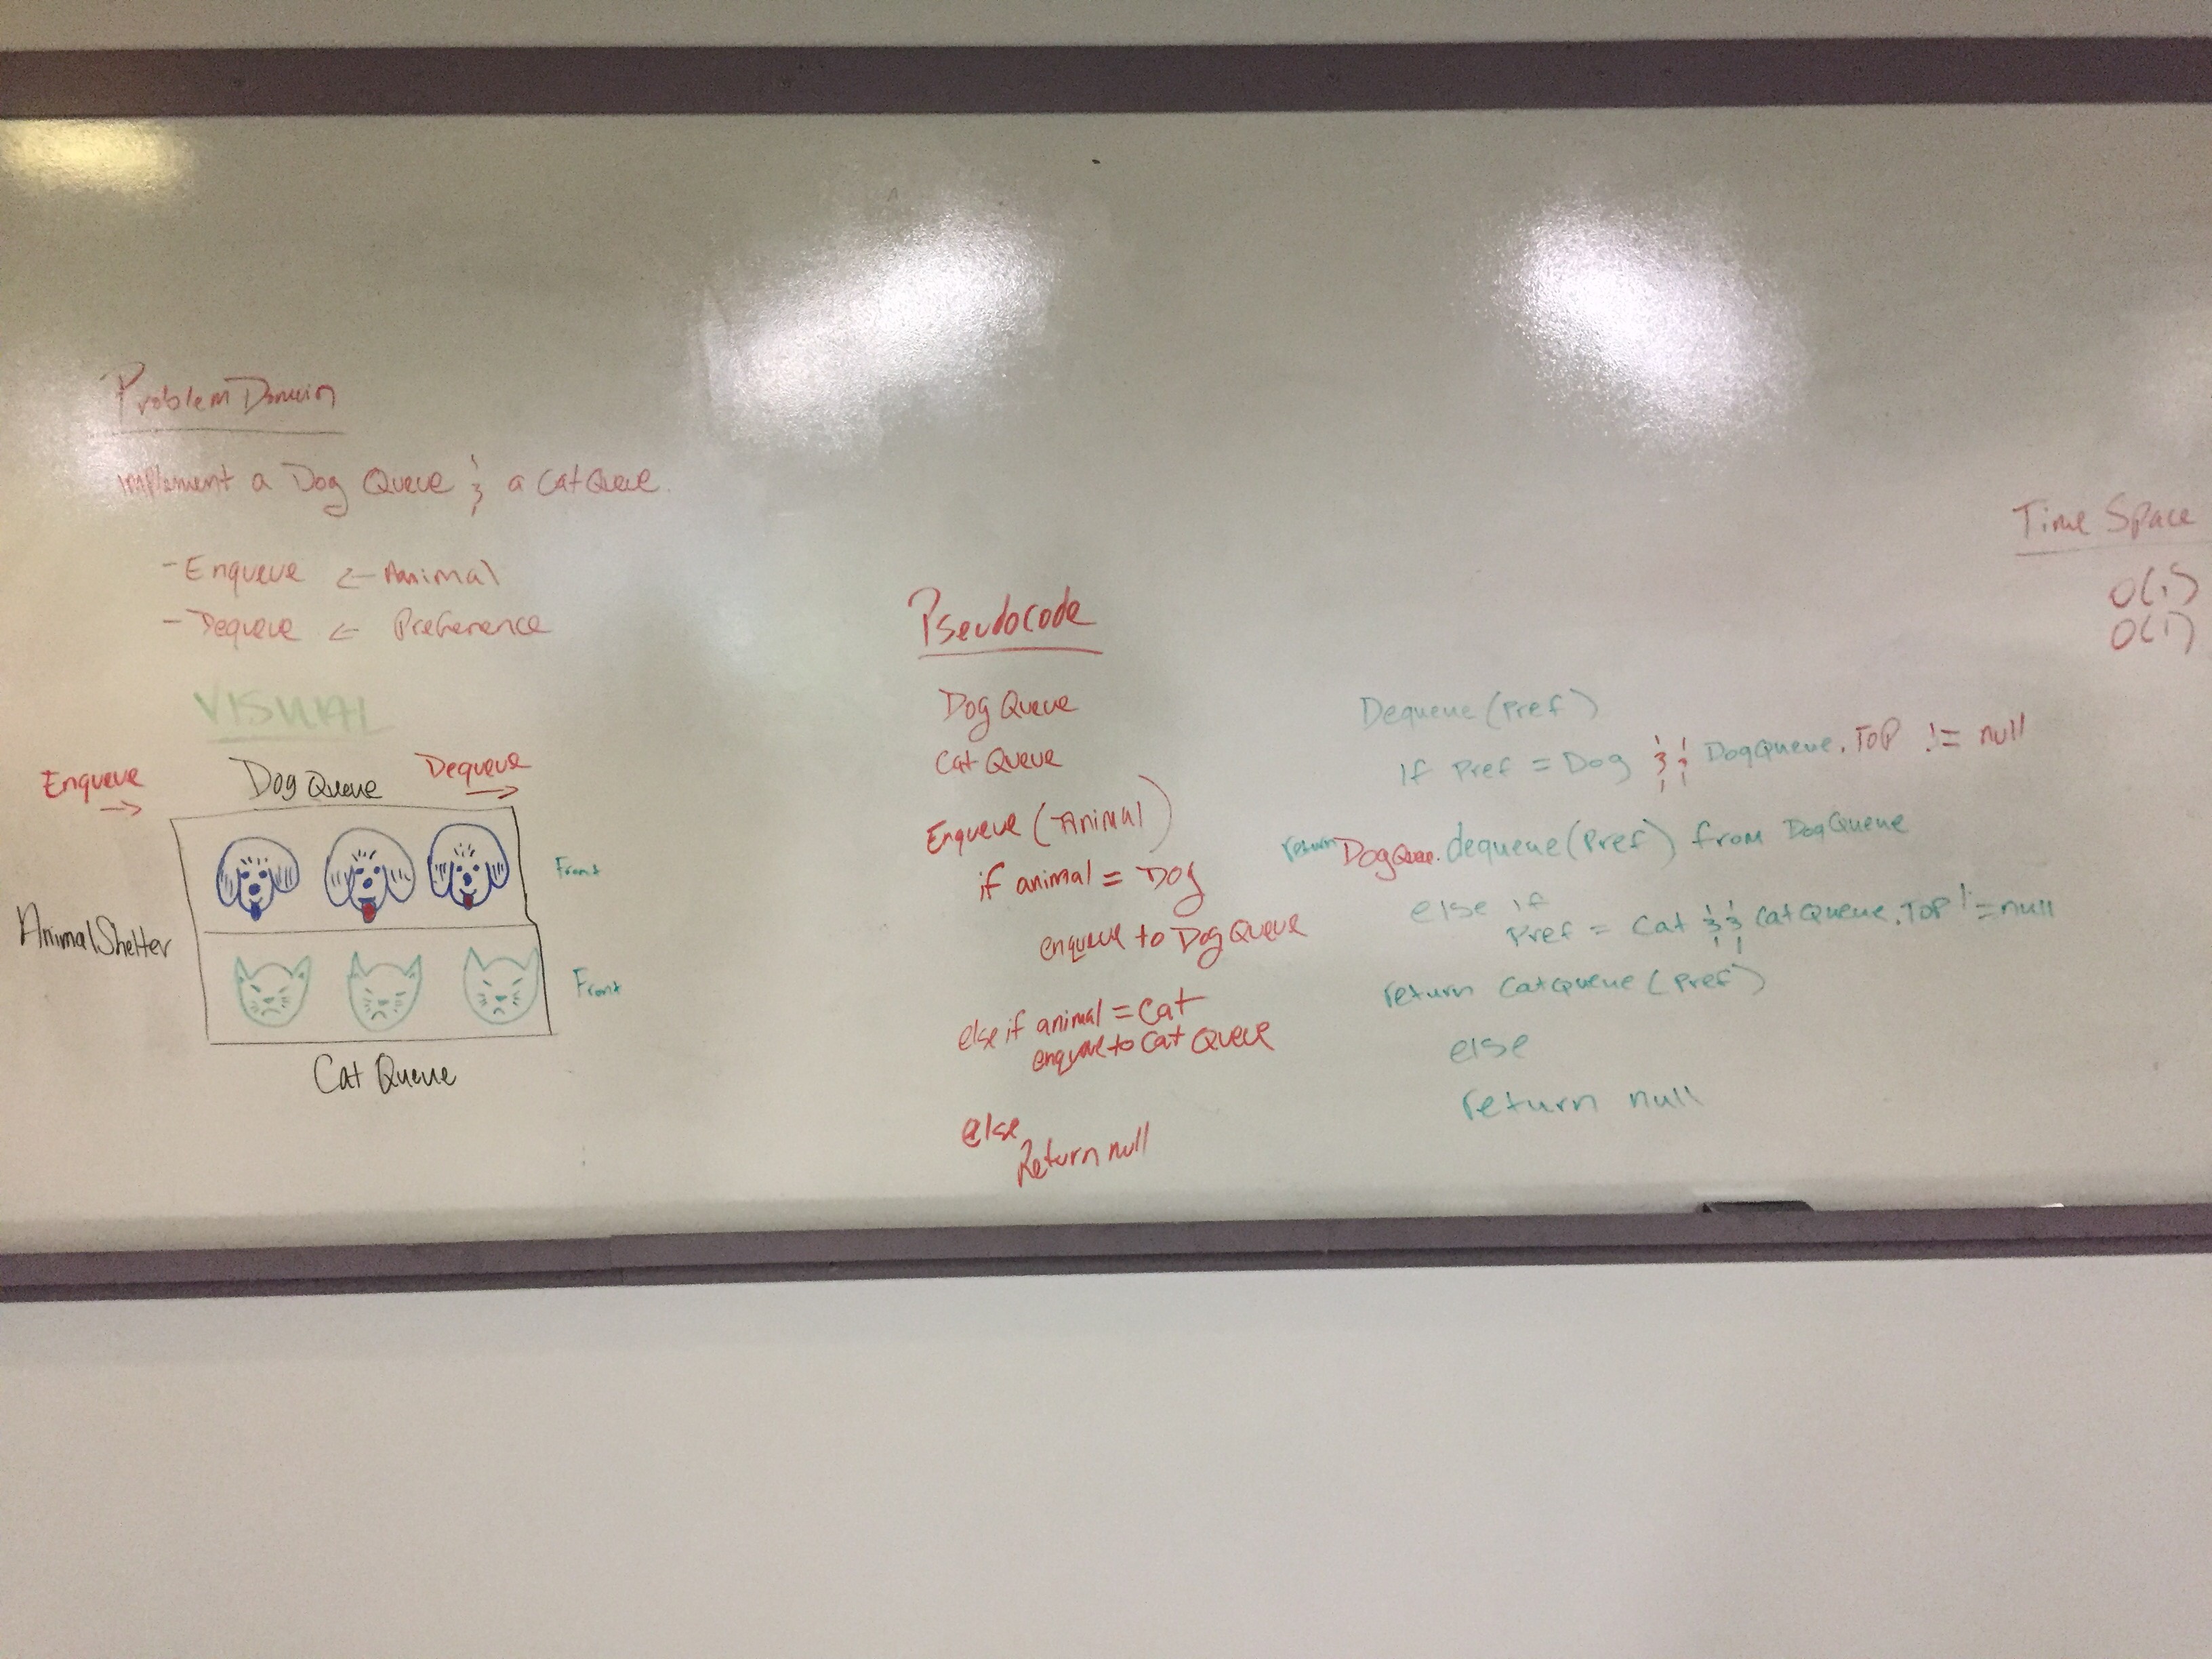 Problem Domain
implement a Dog Queue & a Cat Queue.
- Enqueue ← Animal
- Dequeue ← Preference
VISUAL
Enqueue →
Dog Queue
Dequeue →
Front
AnimalShelter
Front
Cat Queue
Pseudocode
Dog Queue
Cat Queue
Enqueue (Animal)
if animal = Dog
enqueue to Dog Queue
else if animal = Cat
enqueue to Cat Queue
else
Return null
Dequeue (Pref)
if Pref = Dog && DogQueue.TOP != null
return DogQueue.dequeue(Pref) from DogQueue
else if
Pref = Cat && CatQueue.TOP != null
return CatQueue (Pref)
else
return null
Time Space
O(1)
O(1)